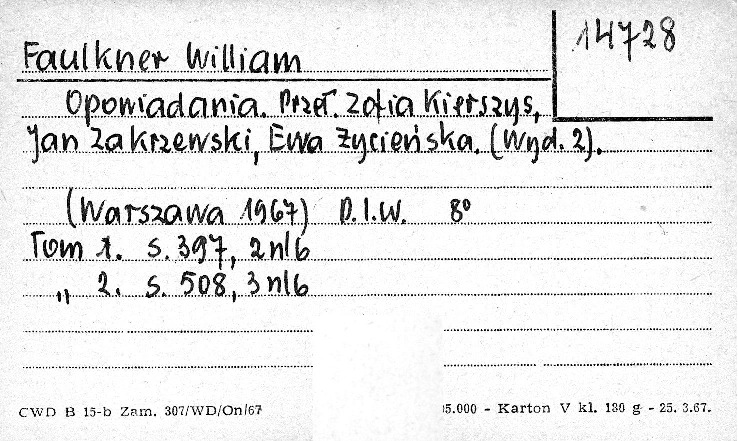 14728
Faulkner William
Opowiadania. Przeł. Zofia Kierszys,
Jan Zakrzewski, Ewa Życieńska. (Wyd. 2).
(Warszawa 1967) P.I.W. 8°
Tom 1. s. 397, 2 nlb
„ 2. s. 508, 3 nlb
CWD B 15-b Zam. 307/WD/On/67 5.000 - Karton V kl. 180 g - 25. 3.67.